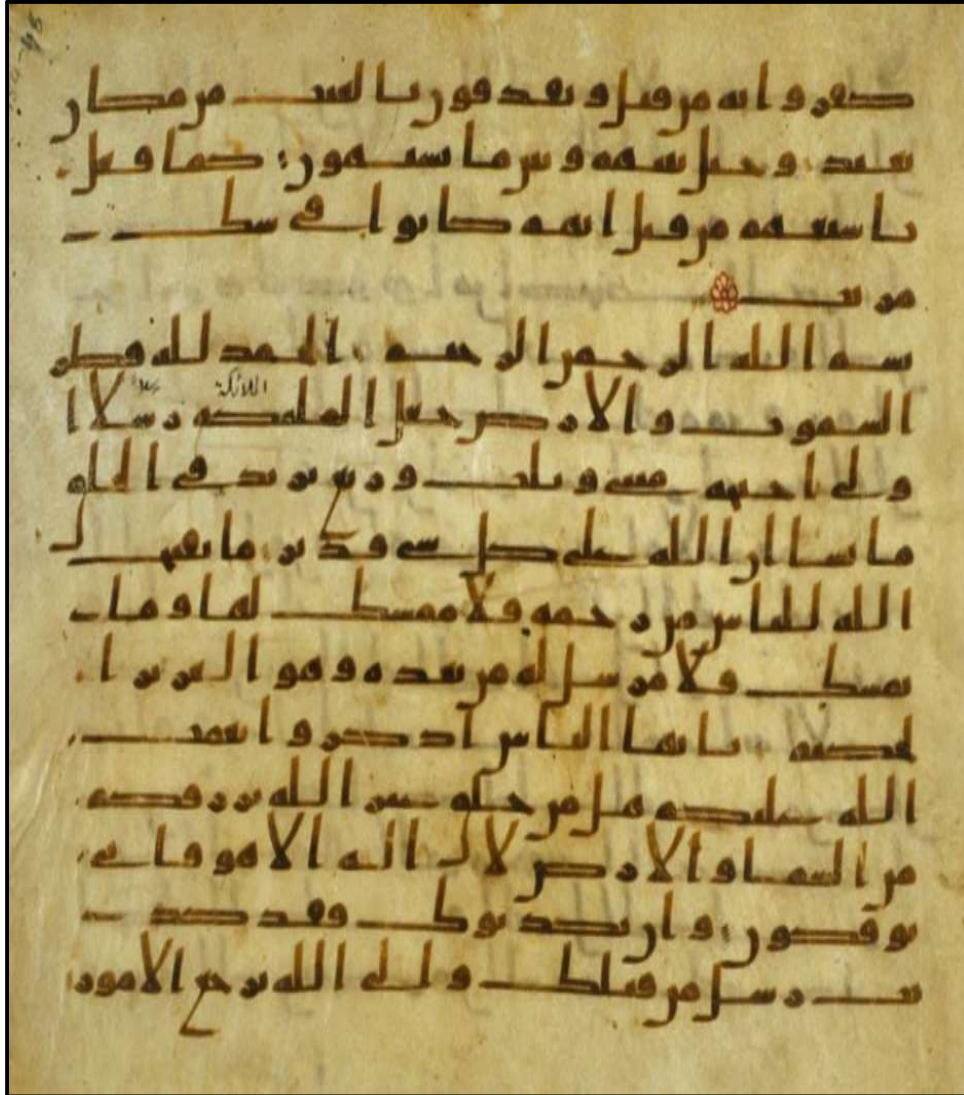 كفروا به من قبل ويقذفون بالغيب من مكان
بعيد وحيل بينهم وبين ما يشتهون كما فعل
باشيعهم من قبل انهم كانوا في شك
مريب
بسم الله الرحمن الرحيم الحمد لله فطر
الملائكة
السموت والارض جعل الملئكة رسلا ا
ولي اجنحة مثنى وثلث وربع يزيد في الخلق
ما يشا ان الله على كل شي قدير ما يفتح
الله للناس من رحمة فلا ممسك لها وما
يمسك فلا مرسل له من بعده وهو العزيز ا
لحكيم يايها الناس اذكروا نعمت
الله عليكم هل من خلق غير الله يرزقكم
من السما والارض لا اله الا هو فانى
توفكون وان يكذبوك فقد كذ
بت رسل من قبلك والى الله ترجع الامور